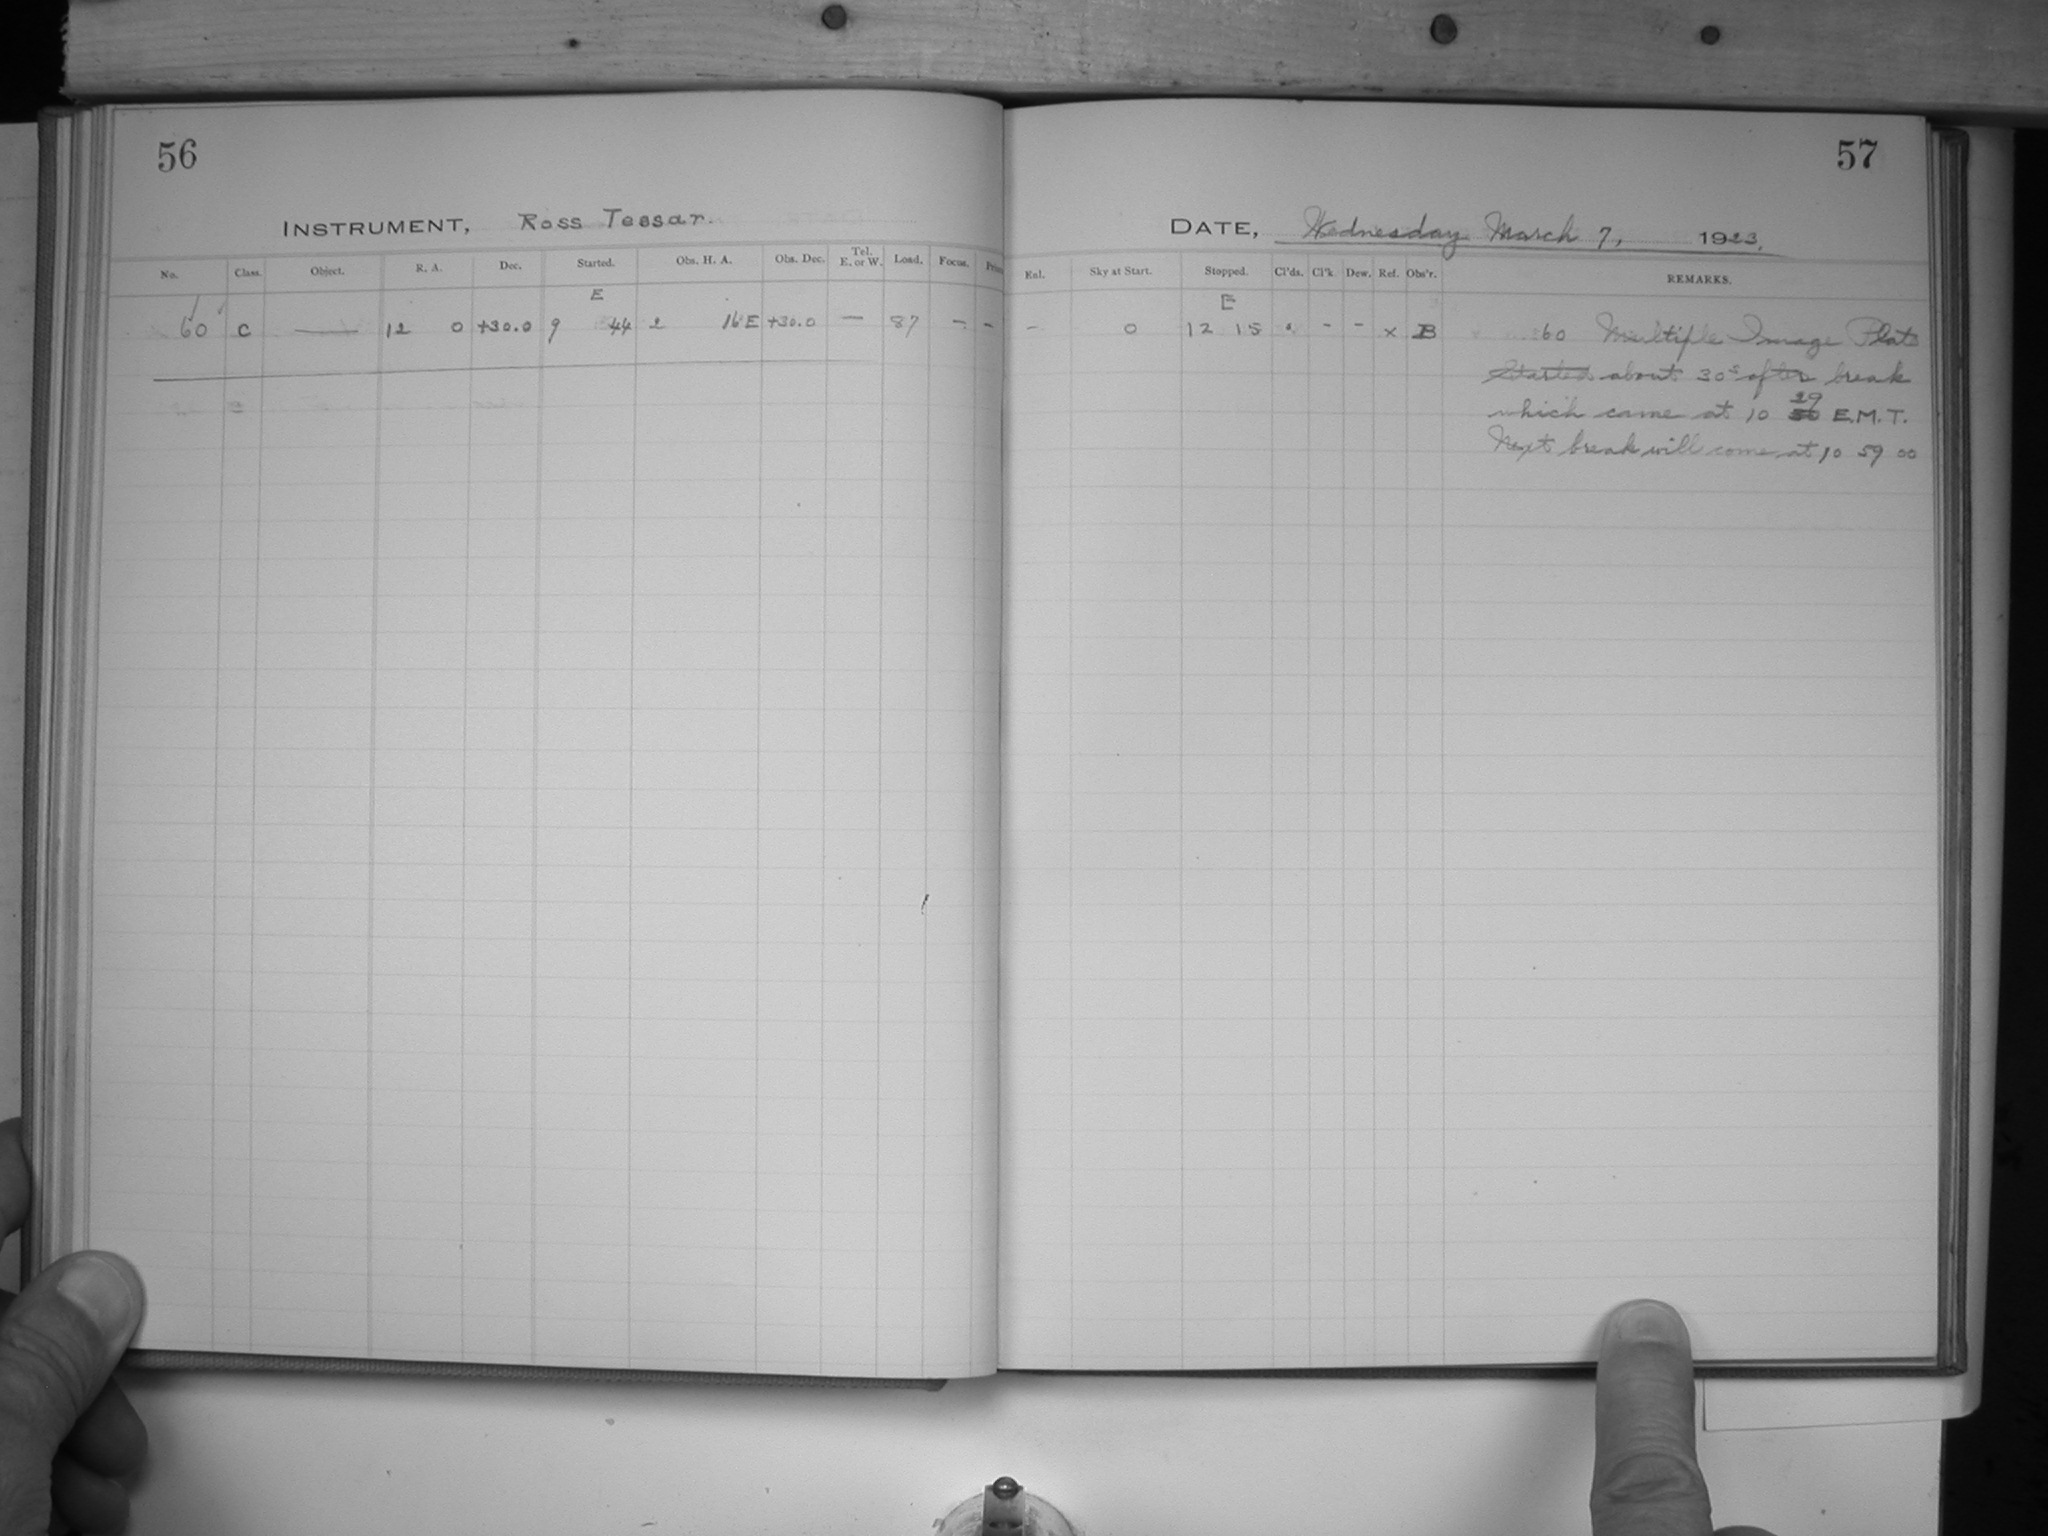 56
INSTRUMENT, Ross Tessar.
No. Class. Object. R. A. Dec. Started. Obs. H. A. Obs. Dec. Tel. E. or W. Load. Focus.
E
60 C — 12 0 +30.0 9 44 2 16 E +30.0 — 87 - -
57
DATE, Wednesday March 7, 1923.
Enl. Sky at Start. Stopped. Cl'ds. Cl'k Dew. Ref. Obs'r. REMARKS.
E
- 0 12 15 - - x B 60 Multiple Image Plate
Started about 30s after break
which came at 10 29 E.M.T.
Next break will come at 10 59 00